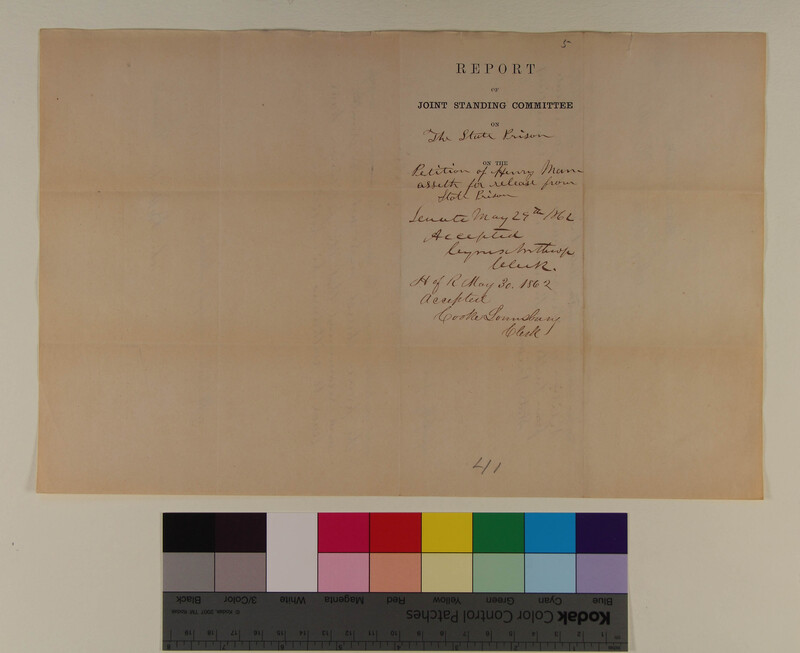 5
REPORT
OF
JOINT STANDING COMMITTEE
ON
The State Prison
ON THE
Petition of Henry Mann
asseth for release from
State Prison
Senate May 29th 1862
Accepted
Cyrus Northrop
Clerk.
H of R May 30. 1862
Accepted
Cooke Lounsbury
Clerk
41
Blue Cyan Green Yellow Red Magenta White 3/Color Black
Kodak Color Control Patches
© Kodak, 2007 TM: Kodak
1 2 3 4 5 6 7 8 9 10 11 12 13 14 15 16 17 18 19